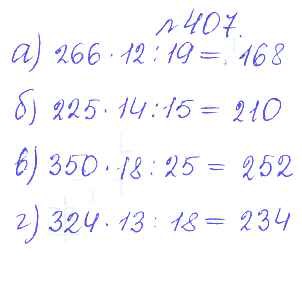 №407.
а) 266 · 12 : 19 = 168
б) 225 · 14 : 15 = 210
в) 350 · 18 : 25 = 252
г) 324 · 13 : 18 = 234